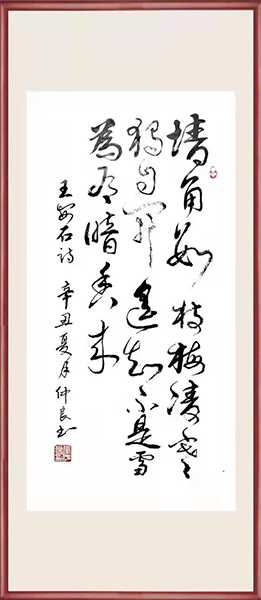 墙角数枝梅凌寒
独自开遥知不是雪
为有暗香来
王安石诗 辛丑夏月仲良书